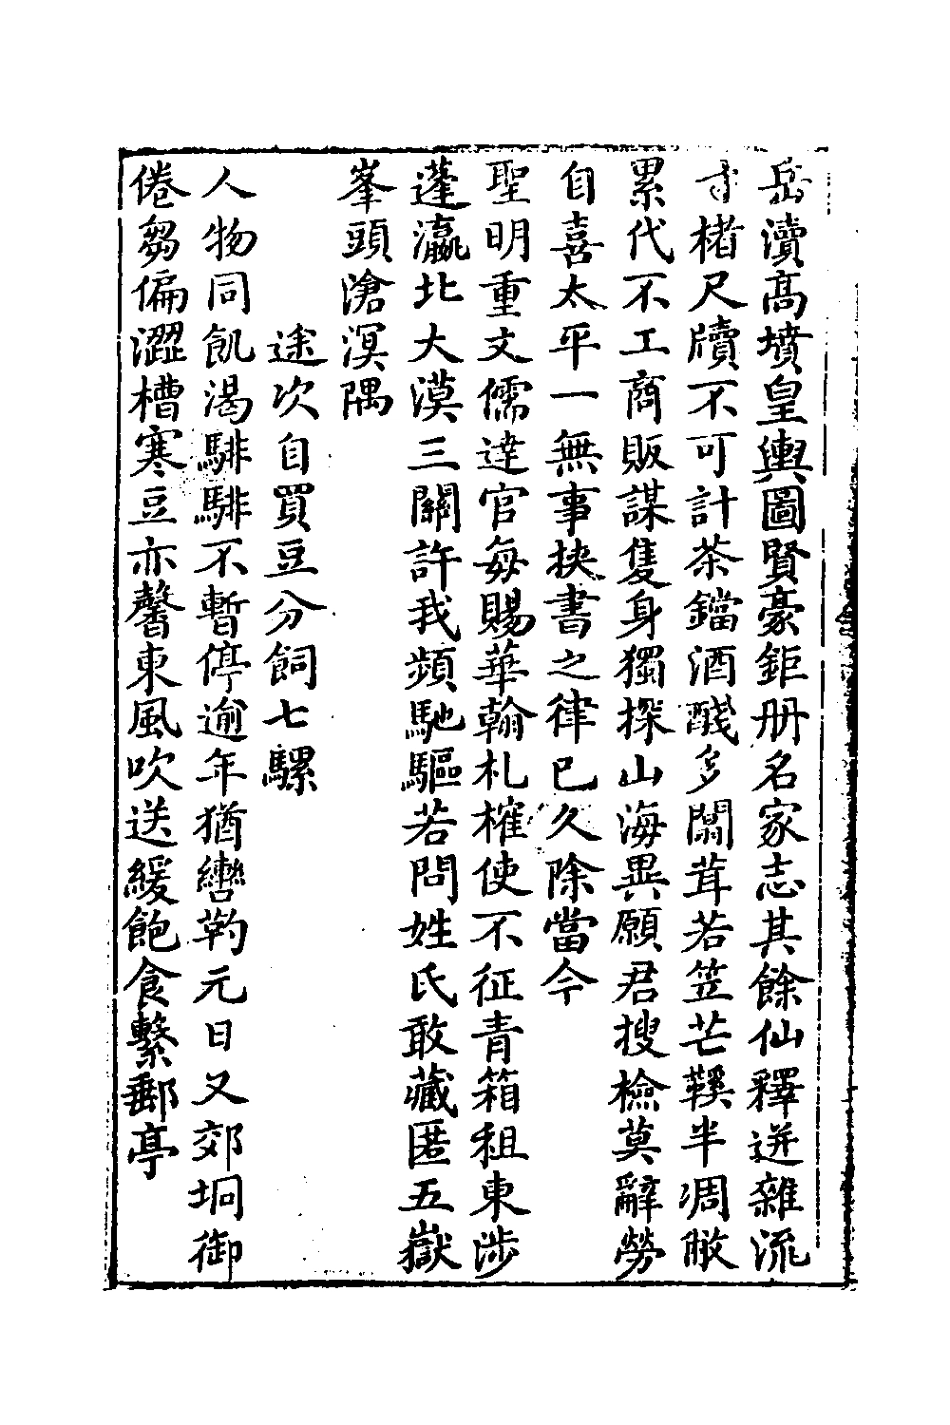 岳瀆高墳皇輿圖賢豪鉅册名家志其餘仙釋迸雜流
寸楮尺牘不可計茶鐺酒醆多闒茸若笠芒鞵半凋敝
累代不工商販謀隻身獨探山海異願君搜檢莫辭勞
自喜太平一無事挾書之律已久除當今
聖明重文儒達官每賜華翰札榷使不征青箱租東涉
蓬瀛北大漠三關許我頻馳驅若問姓氏敢藏匿五嶽
峯頭滄溟隅
途次自買豆分飼七騾
人物同飢渴騑騑不暫停逾年猶轡靮元日又郊坰御
倦芻偏澀槽寒豆亦馨東風吹送緩飽食繫郵亭